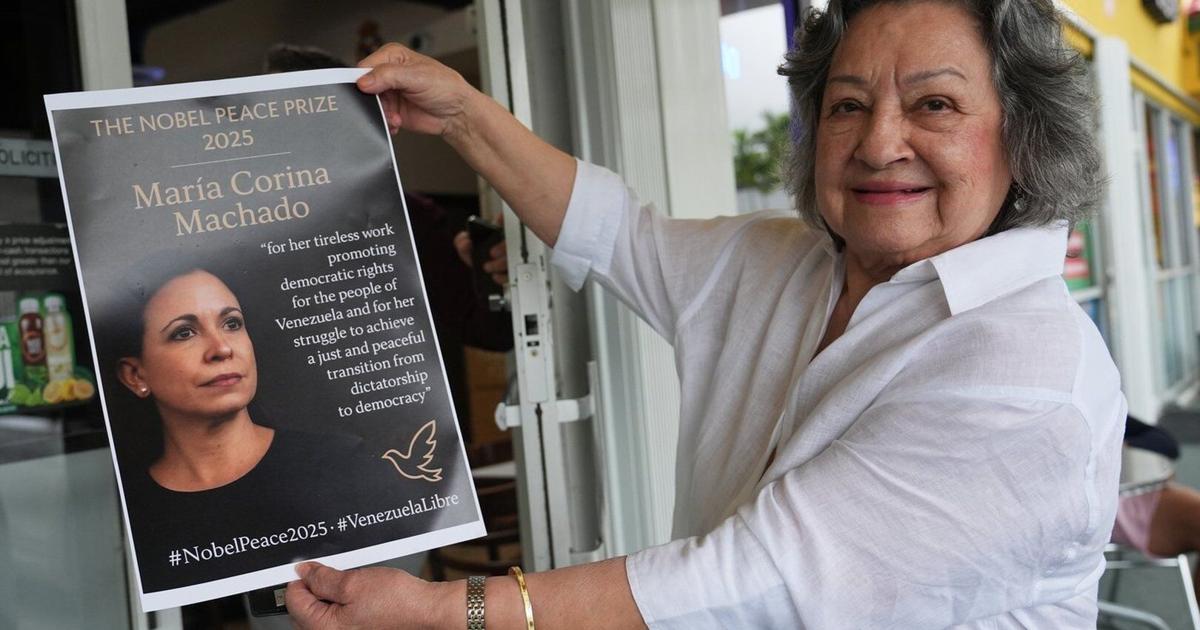 THE NOBEL PEACE PRIZE
2025
María Corina
Machado
“for her tireless work
promoting
democratic rights
for the people of
Venezuela and for her
struggle to achieve
a just and peaceful
transition from
dictatorship
to democracy”
#NobelPeace2025 · #VenezuelaLibre